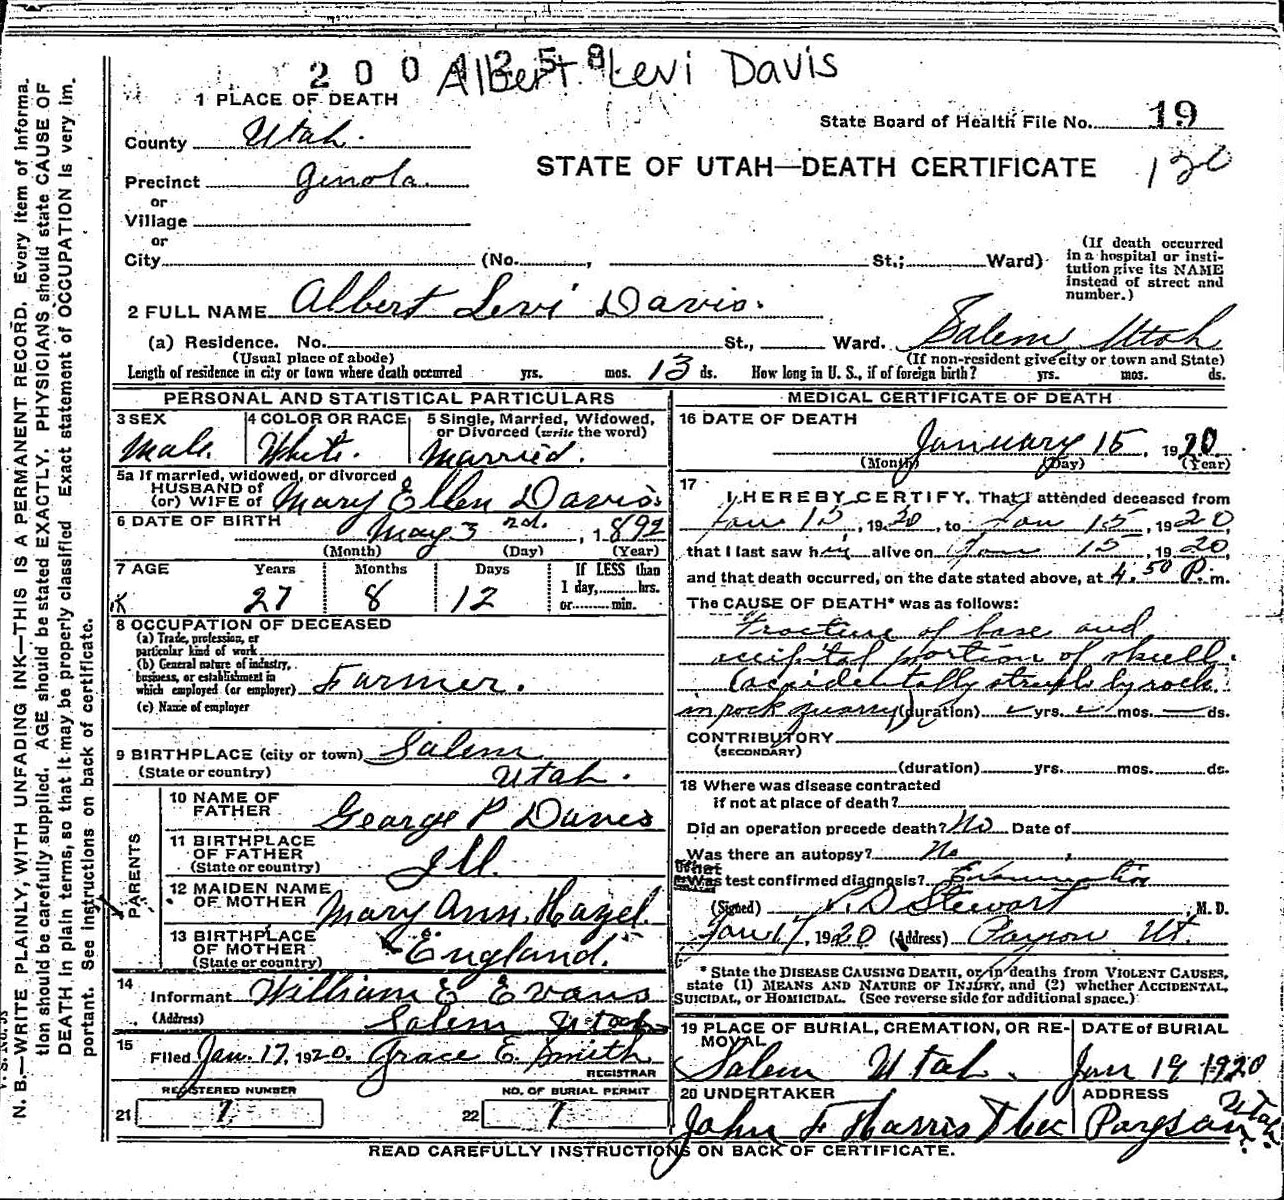 2 0 0 4 2 5 8
Albert Levi Davis
1 PLACE OF DEATH
County Utah.
State Board of Health File No. 19
STATE OF UTAH—DEATH CERTIFICATE
120
Precinct Genola.
or
Village
or
City (No. , St.; Ward)
(If death occurred
in a hospital or insti-
tution give its NAME
instead of street and
number.)
2 FULL NAME Albert Levi Davis.
(a) Residence. No. St., Ward. Salem Utah
(Usual place of abode) (If non-resident give city or town and State)
Length of residence in city or town where death occurred yrs. mos. 13 ds. How long in U. S., if of foreign birth? yrs. mos. ds.
PERSONAL AND STATISTICAL PARTICULARS
3 SEX
Male.
4 COLOR OR RACE
White.
5 Single, Married, Widowed,
or Divorced (write the word)
Married.
5a If married, widowed, or divorced
HUSBAND of
(or) WIFE of Mary Ellen Davis.
6 DATE OF BIRTH
May 3 nd. , 1892
(Month) (Day) (Year)
7 AGE Years Months Days If LESS than
27 8 12 1 day, hrs.
or min.
8 OCCUPATION OF DECEASED
(a) Trade, profession, or
particular kind of work
(b) General nature of industry,
business, or establishment in
which employed (or employer) Farmer.
(c) Name of employer
9 BIRTHPLACE (city or town) Salem
(State or country) Utah.
PARENTS
10 NAME OF
FATHER George P Davis
11 BIRTHPLACE
OF FATHER
(State or country) Ill.
12 MAIDEN NAME
OF MOTHER Mary Ann. Hazel.
13 BIRTHPLACE
OF MOTHER
(State or country) England.
14
Informant William E Evans
(Address) Salem Utah
15
Filed Jan. 17. 1920. Grace E. Smith.
REGISTRAR
REGISTERED NUMBER NO. OF BURIAL PERMIT
21 1 22 1
MEDICAL CERTIFICATE OF DEATH
16 DATE OF DEATH
January 15, 1920
(Month) (Day) (Year)
17
I HEREBY CERTIFY. That I attended deceased from
Jan 15, 1920, to Jan 15, 1920,
that I last saw him alive on Jan 15, 1920,
and that death occurred, on the date stated above, at 4.50 P. m.
The CAUSE OF DEATH* was as follows:
Fracture of base and
occipital portion of skull.
(accidentally struck by rock
in rock quarry) (duration) yrs. mos. ds.
CONTRIBUTORY
(SECONDARY)
(duration) yrs. mos. ds.
18 Where was disease contracted
if not at place of death?
Did an operation precede death? No Date of
Was there an autopsy? No
What
test confirmed diagnosis? Examination
(Signed) Stewart, M. D.
Jan 17, 1920 (Address) Payson Ut.
* State the DISEASE CAUSING DEATH, or in deaths from VIOLENT CAUSES,
state (1) MEANS AND NATURE OF INJURY, and (2) whether ACCIDENTAL,
SUICIDAL, or HOMICIDAL. (See reverse side for additional space.)
19 PLACE OF BURIAL, CREMATION, OR RE-
MOVAL
Salem Utah.
DATE of BURIAL
Jan 19 1920
20 UNDERTAKER
John F Harris
ADDRESS
Payson Utah.
READ CAREFULLY INSTRUCTIONS ON BACK OF CERTIFICATE.
N. B.—WRITE PLAINLY, WITH UNFADING INK—THIS IS A PERMANENT RECORD. Every item of informa-
tion should be carefully supplied. AGE should be stated EXACTLY. PHYSICIANS should state CAUSE OF
DEATH in plain terms, so that it may be properly classified. Exact statement of OCCUPATION is very im-
portant. See instructions on back of certificate.